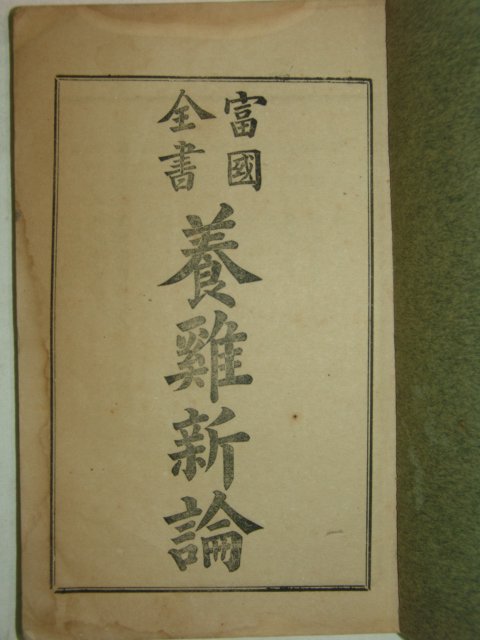 富國
全書
養雞新論